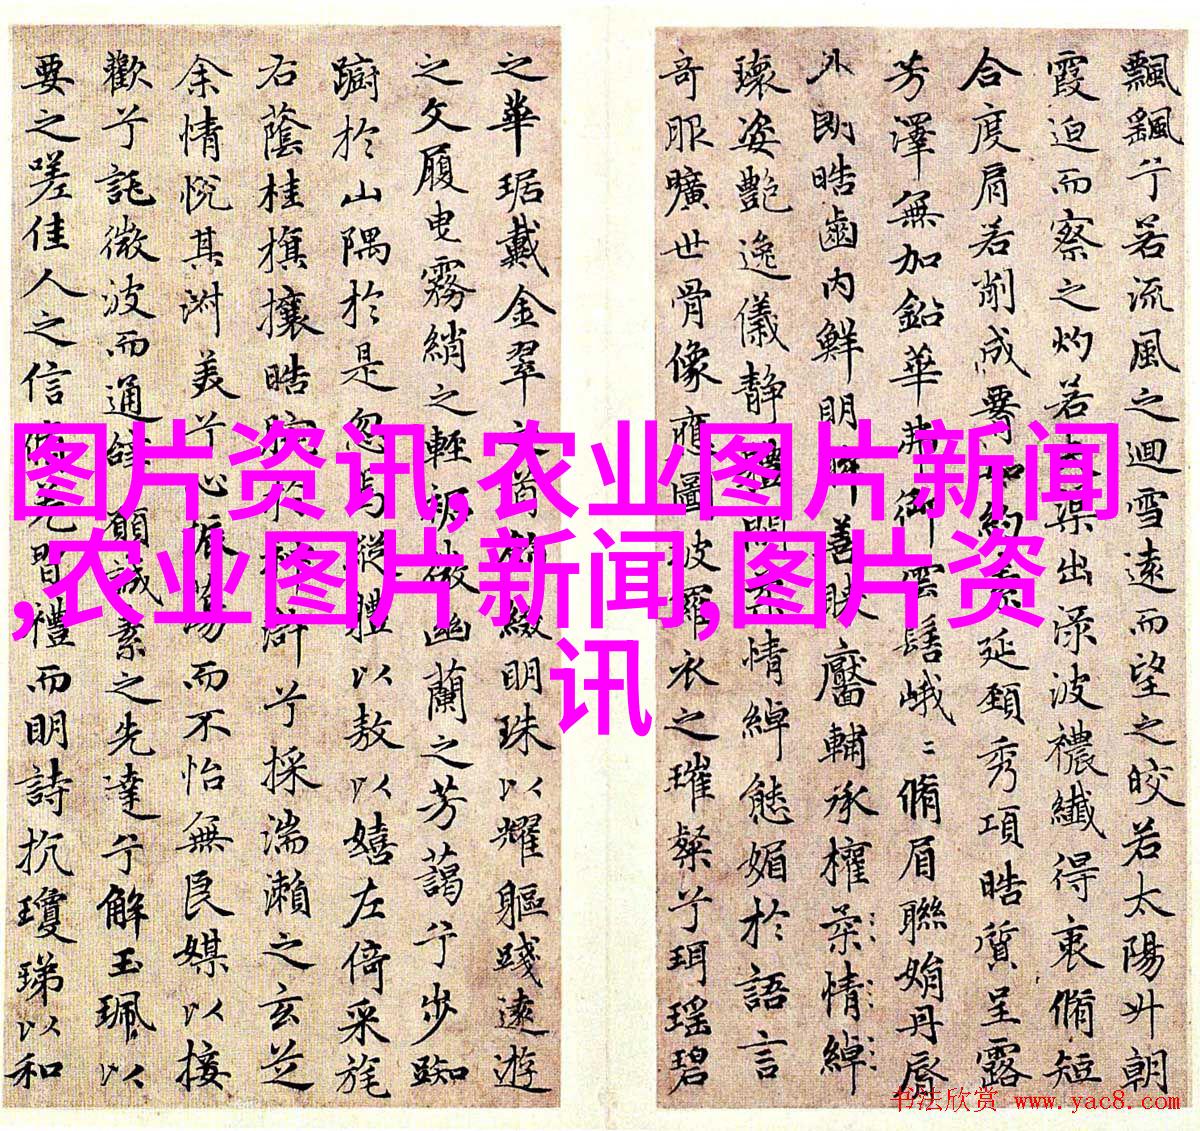 飄飖兮若流風之迴雪遠而望之皎若太陽升朝
霞迫而察之灼若夫渠出淥波襛纖得衷脩短
合度肩若削成署如約素延頸秀項皓質呈露
芳澤無加鉛華弗御雲髻峨〻脩眉聯娟丹脣
外朗皓齒内鮮明眸善睞靨輔承權柔情綽
瓌姿艷逸儀靜體閑柔情綽態媚於語言
奇服曠世骨像應圖披羅衣之璀粲兮珥瑤碧
之華琚戴金翠之首飾綴明珠以耀軀踐遠遊
之文履曳霧綃之輕裾微幽蘭之芳藹兮步踟
躕於山隅於是忽焉縱體以敖以嬉左倚采旄
右蔭桂旗攘皓腕於神滸兮採湍瀨之玄芝
余情悅其淑美兮心振蕩而不怡無良媒以接
歡兮託微波而通辭願誠素之先達兮解玉珮以
要之嗟佳人之信脩羌習禮而明詩抗瓊珶以和
图片资讯,农业图片新闻
,农业图片新闻,图片资
讯
书法欣赏 www.yac8.com